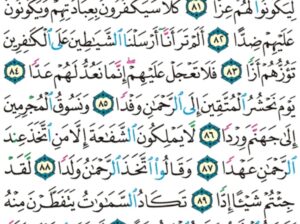 لِّيَكُونُوا۟ لَهُمْ عِزًّا ٨١ كَلَّا سَيَكْفُرُونَ بِعِبَادَتِهِمْ وَيَكُونُونَ
عَلَيْهِمْ ضِدًّا ٨٢ أَلَمْ تَرَ أَنَّا أَرْسَلْنَا ٱلشَّيَٰطِينَ عَلَى ٱلْكَٰفِرِينَ
تَؤُزُّهُمْ أَزًّا ٨٣ فَلَا تَعْجَلْ عَلَيْهِمْ إِنَّمَا نَعُدُّ لَهُمْ عَدًّا ٨٤
يَوْمَ نَحْشُرُ ٱلْمُتَّقِينَ إِلَى ٱلرَّحْمَٰنِ وَفْدًا ٨٥ وَنَسُوقُ ٱلْمُجْرِمِينَ
إِلَىٰ جَهَنَّمَ وِرْدًا ٨٦ لَّا يَمْلِكُونَ ٱلشَّفَٰعَةَ إِلَّا مَنِ ٱتَّخَذَ عِندَ
ٱلرَّحْمَٰنِ عَهْدًا ٨٧ وَقَالُوا۟ ٱتَّخَذَ ٱلرَّحْمَٰنُ وَلَدًا ٨٨ لَّقَدْ
جِئْتُمْ شَيْـًٔا إِدًّا ٨٩ تَكَادُ ٱلسَّمَٰوَٰتُ يَتَفَطَّرْنَ مِنْهُ